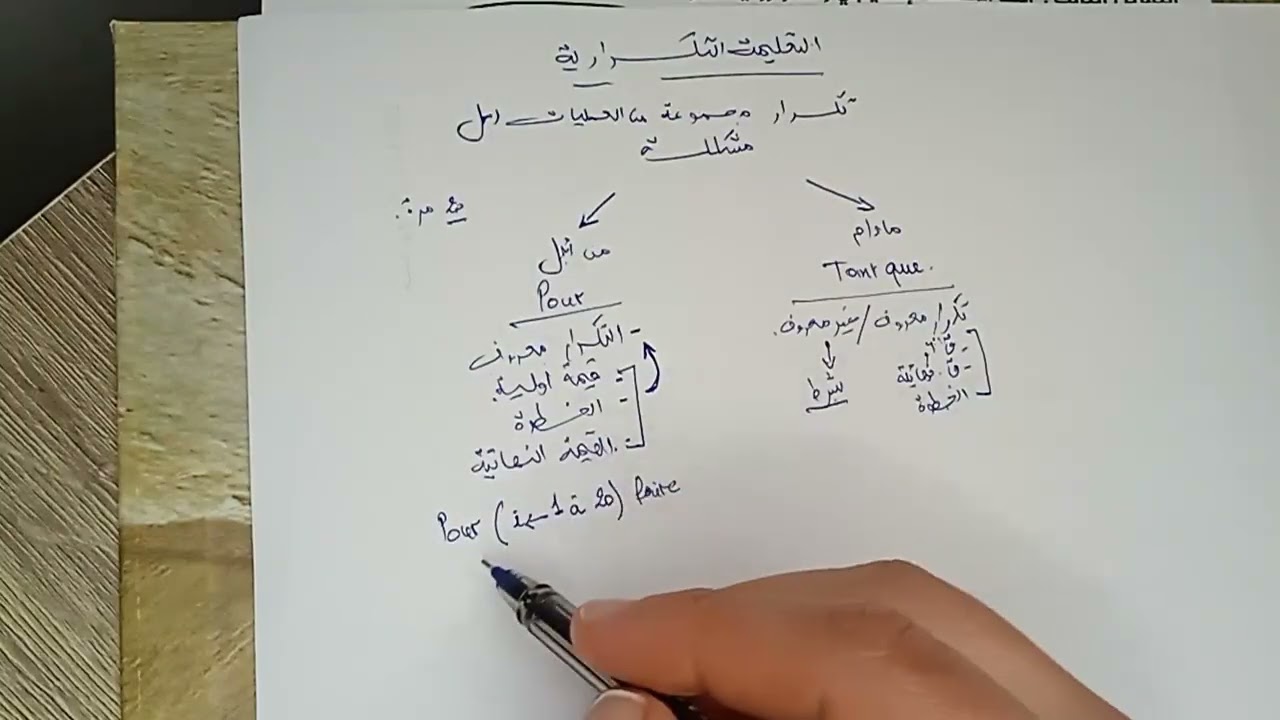 التعليمة التكرارية
تكرار مجموعة من العمليات لحل
مشكلة
مرة.
من أجل
Pour
- التكرار معروف
- قيمة اولية.
- الخطوة
- القيمة النهائية
Pour (i ← 1 à 20) Faire
مادام
Tant que.
تكرار معروف / غير معروف.
شرط
- ق. نهائية
الخطوة